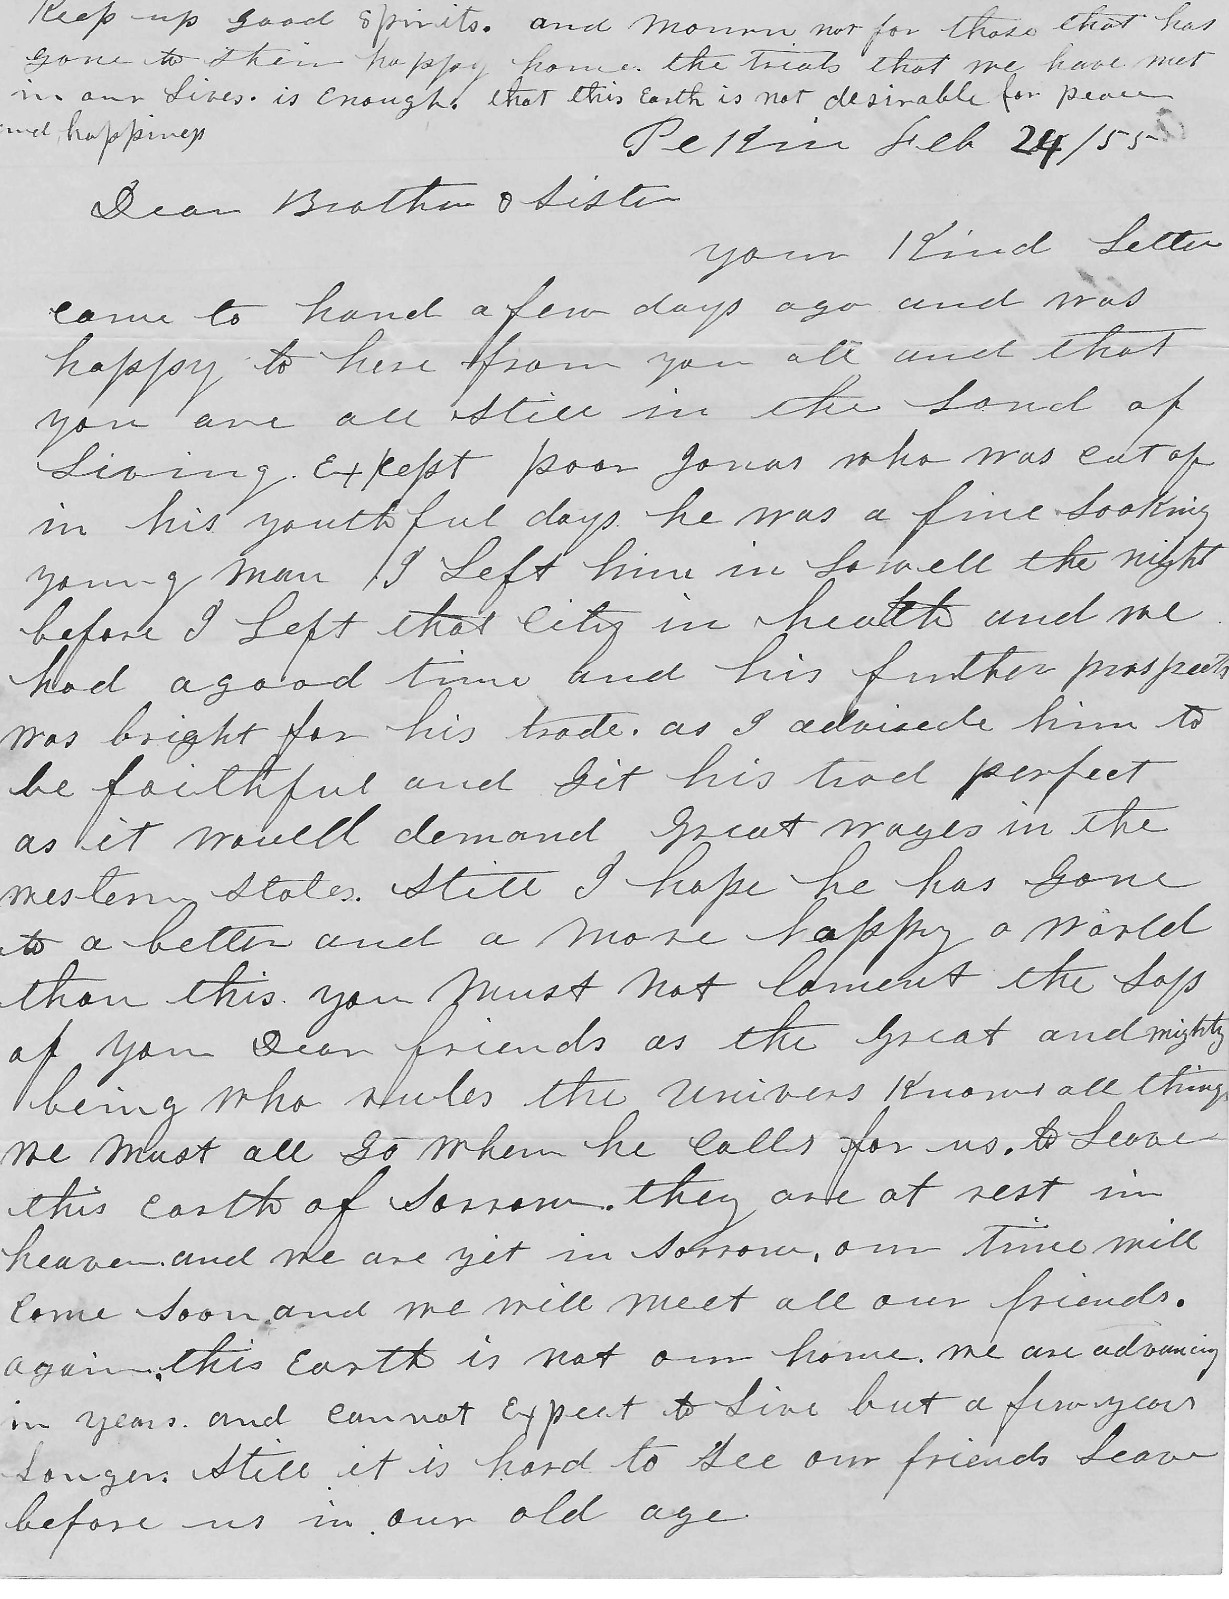 Keep up good spirits. and mourn not for those that has
gone to their happy home. the trials that we have met
in our lives. is enough. that this Earth is not desirable for peace
and happiness
Pekin Feb 24/55
Dear Brother & Sister
your Kind Letter
came to hand a few days ago and was
happy to here from you all and that
you are all still in the Land of
Living. Exkept poor Jonas who was cut of
in his youthful days he was a fine Looking
young man I Left him in Lowell the night
before I Left that City in health and we
had a good time and his further prospects
was bright for his trade. as I advisede him to
be faithful and Git his trad perfect
as it would demand Great wages in the
western States. Still I hope he has Gone
to a better and a more happy a world
than this. you must not lament the Loss
of your Dear friends as the Great and mighty
being who rules the Univers Knows all things
we must all Go when he Calls for us. to Leave
this earth of Sorrow. they are at rest in
heaven. and we are yet in Sorrow. our time will
Come Soon and we will meet all our friends.
again. this Earth is not our home. we are advancing
in years. and cannot Expect to Live but a few years
Longer. Still it is hard to See our friends Leave
before us in our old age